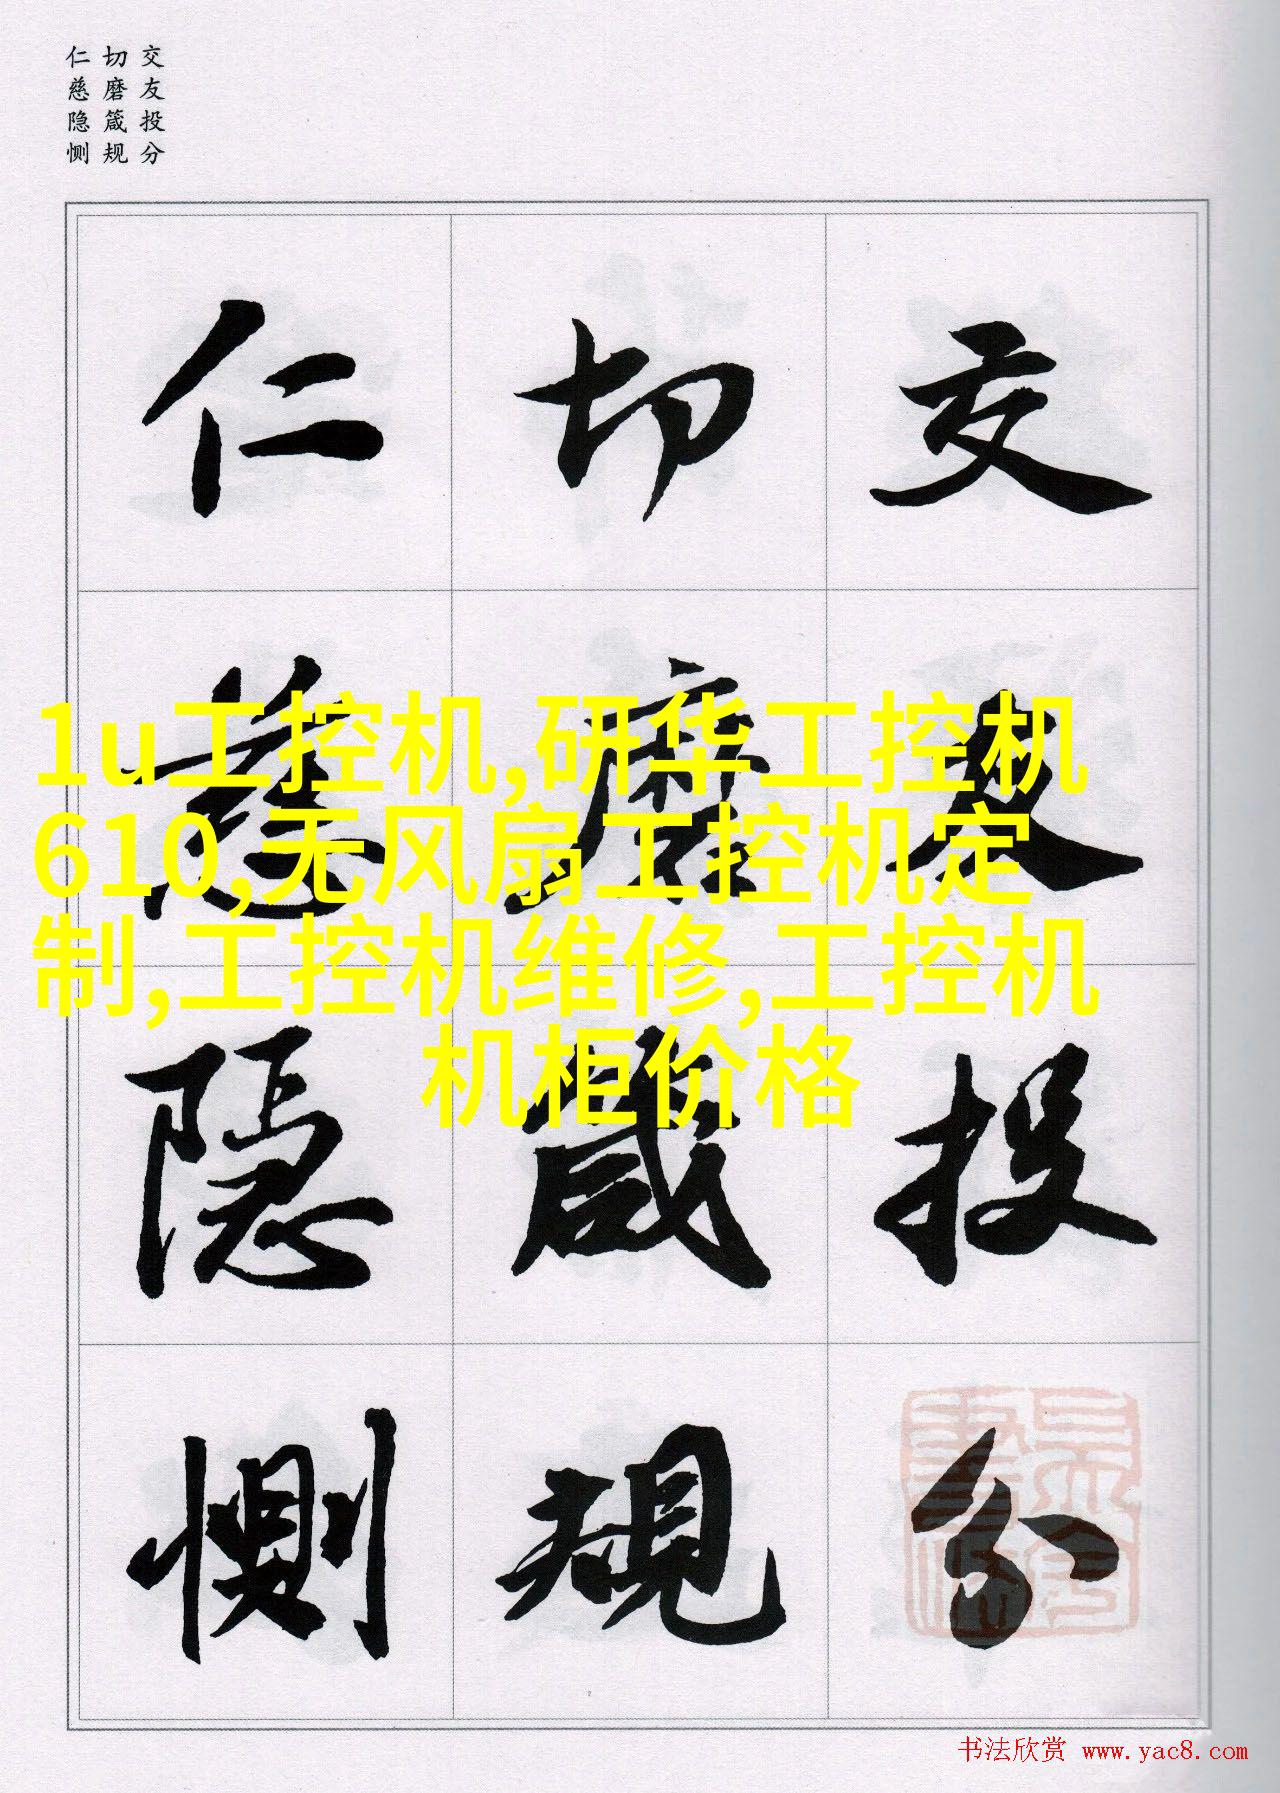 交友投分
切磨箴规
仁慈隐恻
交友投分
切磨箴規
仁慈隐恻
1u工控机,研华工控机
610,无风扇工控机定
制,工控机维修,工控机
机柜价格
书法欣赏 www.yac8.com